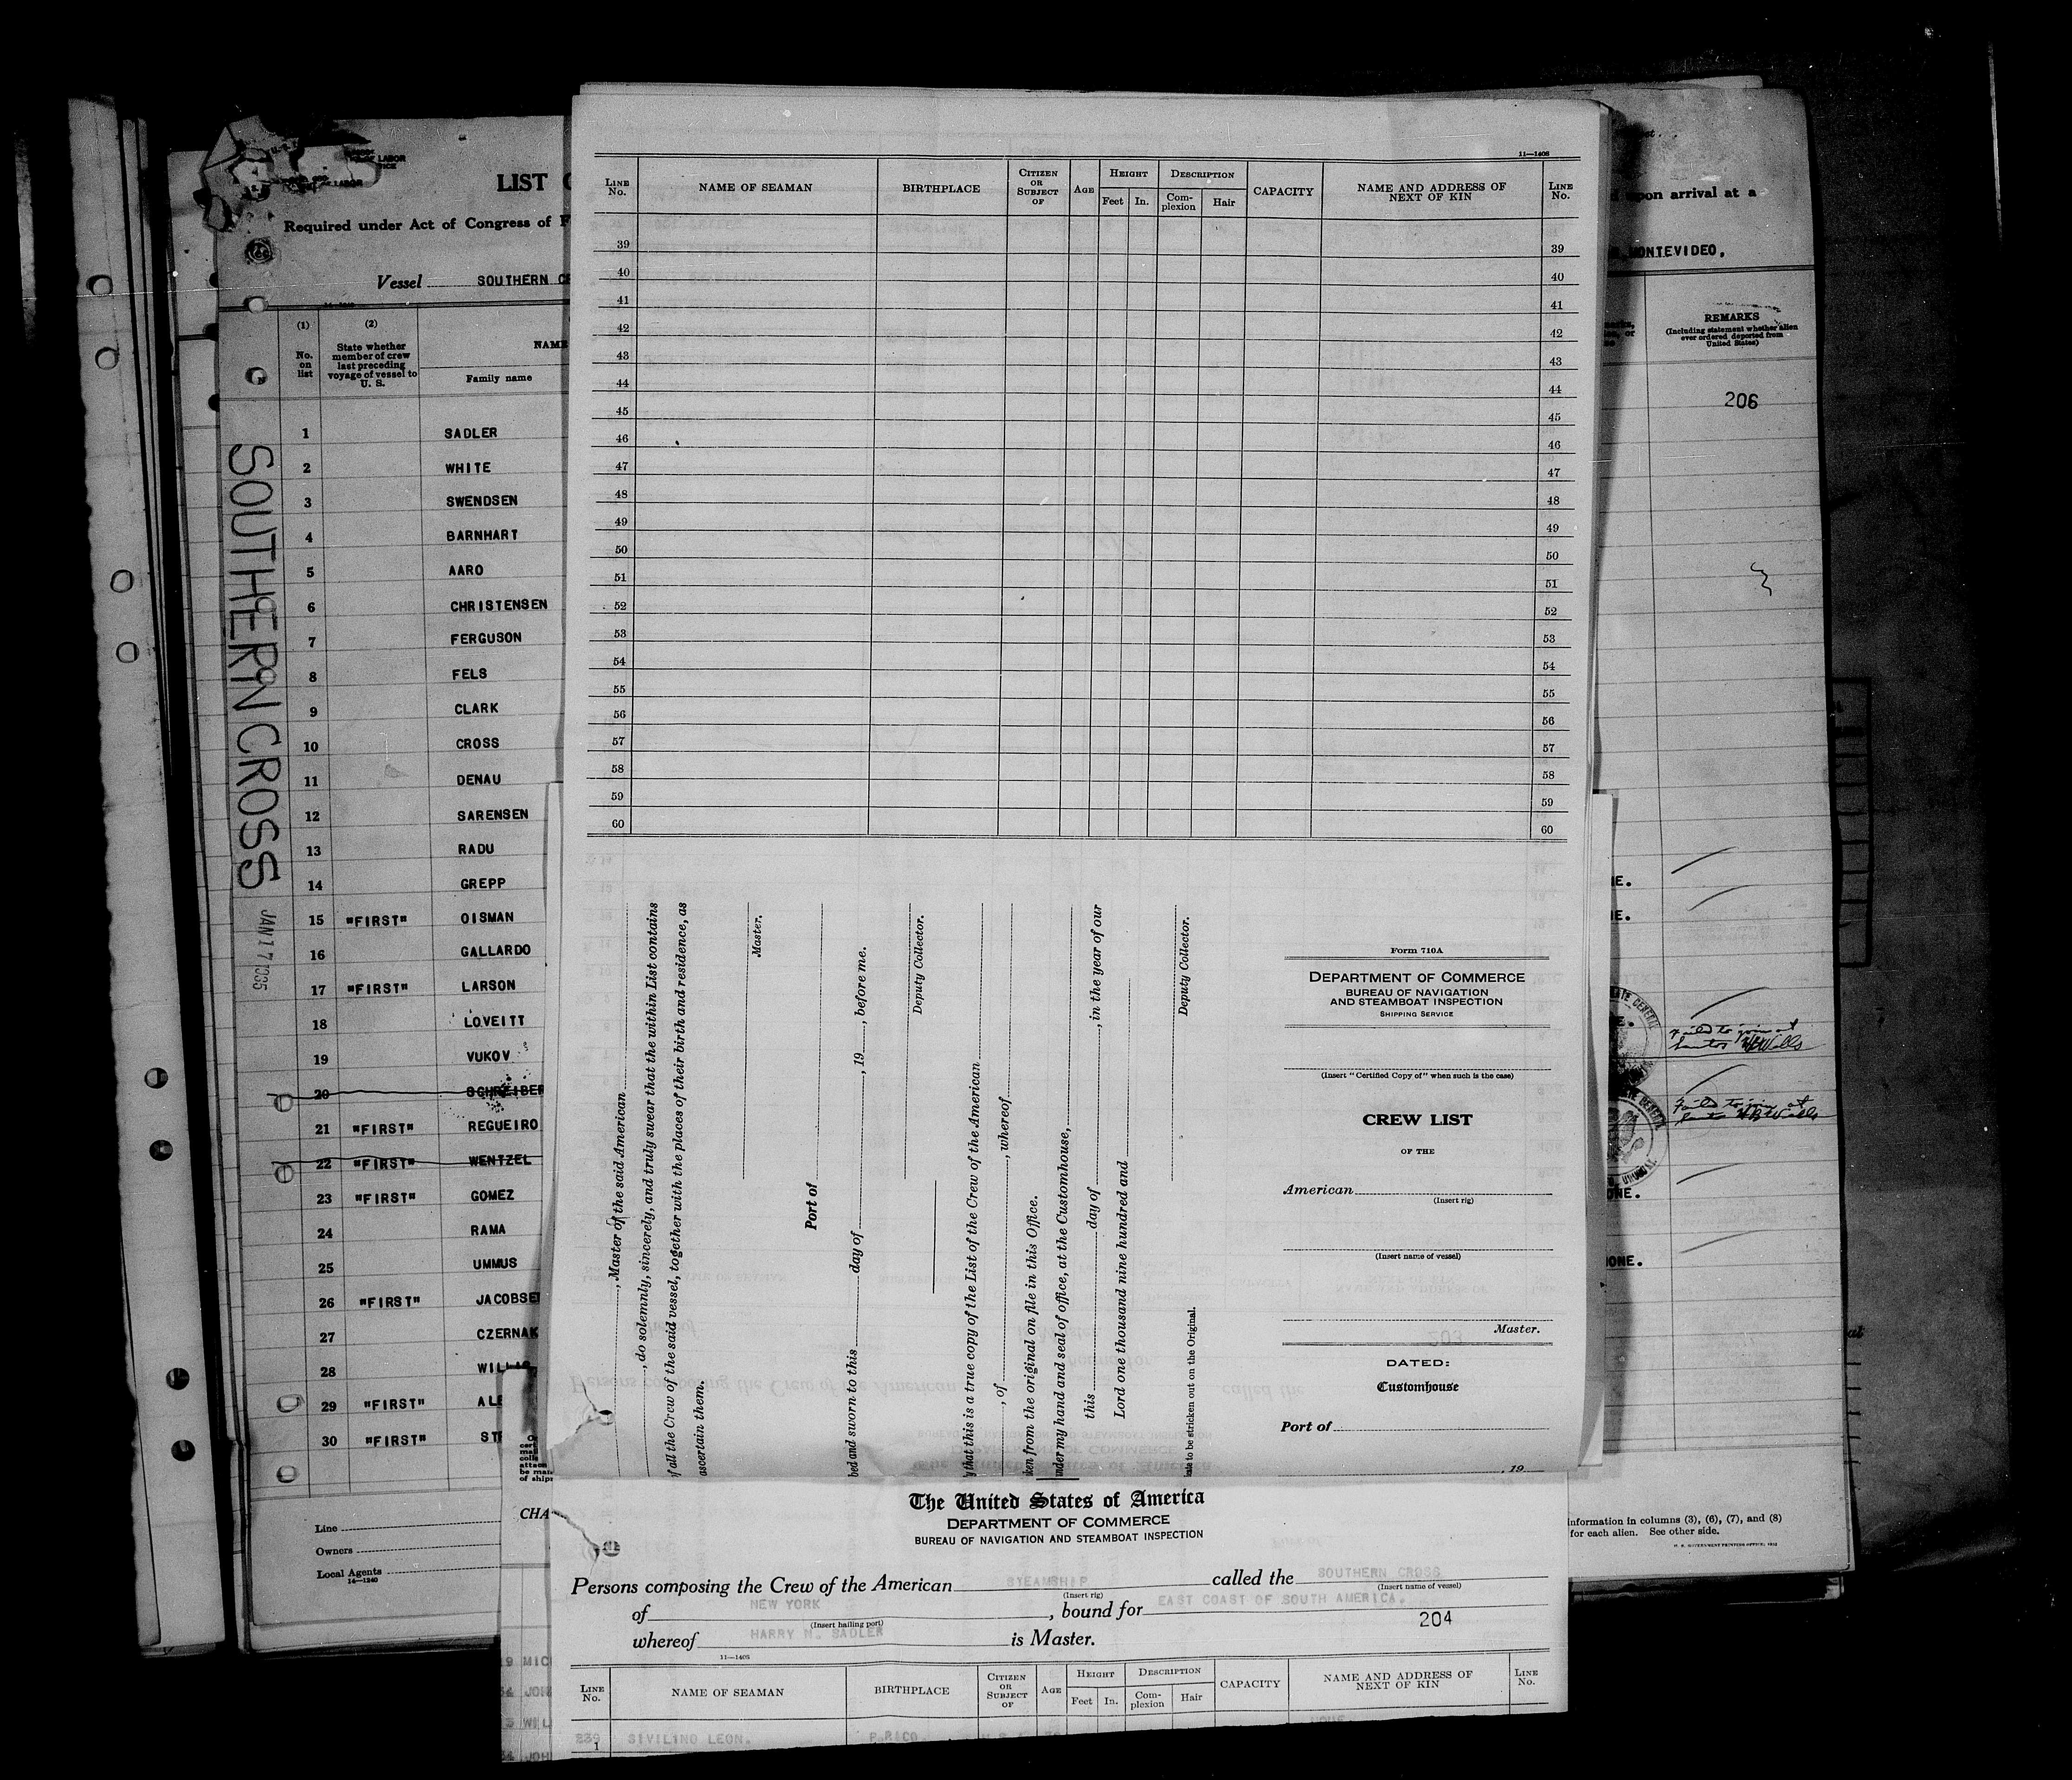 LABOR
LABOR
LIST
Required under Act of Congress of F
Vessel SOUTHERN CR
(1) (2)
No. on list
State whether member of crew last preceding voyage of vessel to U. S.
NAME
Family name
1 SADLER
2 WHITE
3 SWENDSEN
4 BARNHART
5 AARO
6 CHRISTENSEN
7 FERGUSON
8 FELS
9 CLARK
10 CROSS
11 DENAU
12 SARENSEN
13 RADU
14 GREPP
15 "FIRST" OISMAN
16 GALLARDO
17 "FIRST" LARSON
18 LOVEITT
19 VUKOV
20 SCHREIBER
21 "FIRST" REGUEIRO
22 "FIRST" WENTZEL
23 "FIRST" GOMEZ
24 RAMA
25 UMMUS
26 "FIRST" JACOBSE
27 CZERNAK
28 WILLIS
29 "FIRST" ALE
30 "FIRST" ST
Line
Owners
Local Agents
14—1240
SOUTHERN CROSS
JAN 17 1935
11—1408
LINE No. NAME OF SEAMAN BIRTHPLACE CITIZEN OR SUBJECT OF AGE HEIGHT Feet In. DESCRIPTION Complexion Hair CAPACITY NAME AND ADDRESS OF NEXT OF KIN LINE No.
39 39
40 40
41 41
42 42
43 43
44 44
45 45
46 46
47 47
48 48
49 49
50 50
51 51
52 52
53 53
54 54
55 55
56 56
57 57
58 58
59 59
60 60
, Master of the said American
, do solemnly, sincerely, and truly swear that the within List contains
of all the Crew of the said vessel, together with the places of their birth and residence, as
ascertain them.
Master.
Port of
bed and sworn to this day of , 19 , before me.
Deputy Collector.
y that this is a true copy of the List of the Crew of the American
, of , whereof
ken from the original on file in this Office.
nder my hand and seal of office, at the Customhouse,
this day of , in the year of our
Lord one thousand nine hundred and
Deputy Collector.
to be stricken out on the Original.
Form 710A
DEPARTMENT OF COMMERCE
BUREAU OF NAVIGATION
AND STEAMBOAT INSPECTION
SHIPPING SERVICE
(Insert "Certified Copy of" when such is the case)
CREW LIST
OF THE
American
(Insert rig)
(Insert name of vessel)
203
Master.
DATED:
Customhouse
Port of
, 19
The United States of America
DEPARTMENT OF COMMERCE
BUREAU OF NAVIGATION AND STEAMBOAT INSPECTION
Persons composing the Crew of the American STEAMSHIP called the SOUTHERN CROSS
(Insert rig) (Insert name of vessel)
of NEW YORK , bound for EAST COAST OF SOUTH AMERICA.
(Insert hailing port)
204
whereof HARRY N. SADLER is Master.
11—1408
LINE No. NAME OF SEAMAN BIRTHPLACE CITIZEN OR SUBJECT OF AGE HEIGHT Feet In. DESCRIPTION Complexion Hair CAPACITY NAME AND ADDRESS OF NEXT OF KIN LINE No.
239 SIVILINO LEON. P.RICO. NONE.
1
CHA
of ship
9 MIC
JOH
WIL
JOH
upon arrival at a
MONTEVIDEO,
REMARKS
(Including statement whether alien ever ordered deported from United States)
206
NE.
NE.
E.
Failed to join at
Santos HBWells
Failed to join at
Santos HBWells
ONE.
IONE.
information in columns (3), (6), (7), and (8)
for each alien. See other side.
U. S. GOVERNMENT PRINTING OFFICE: 1932